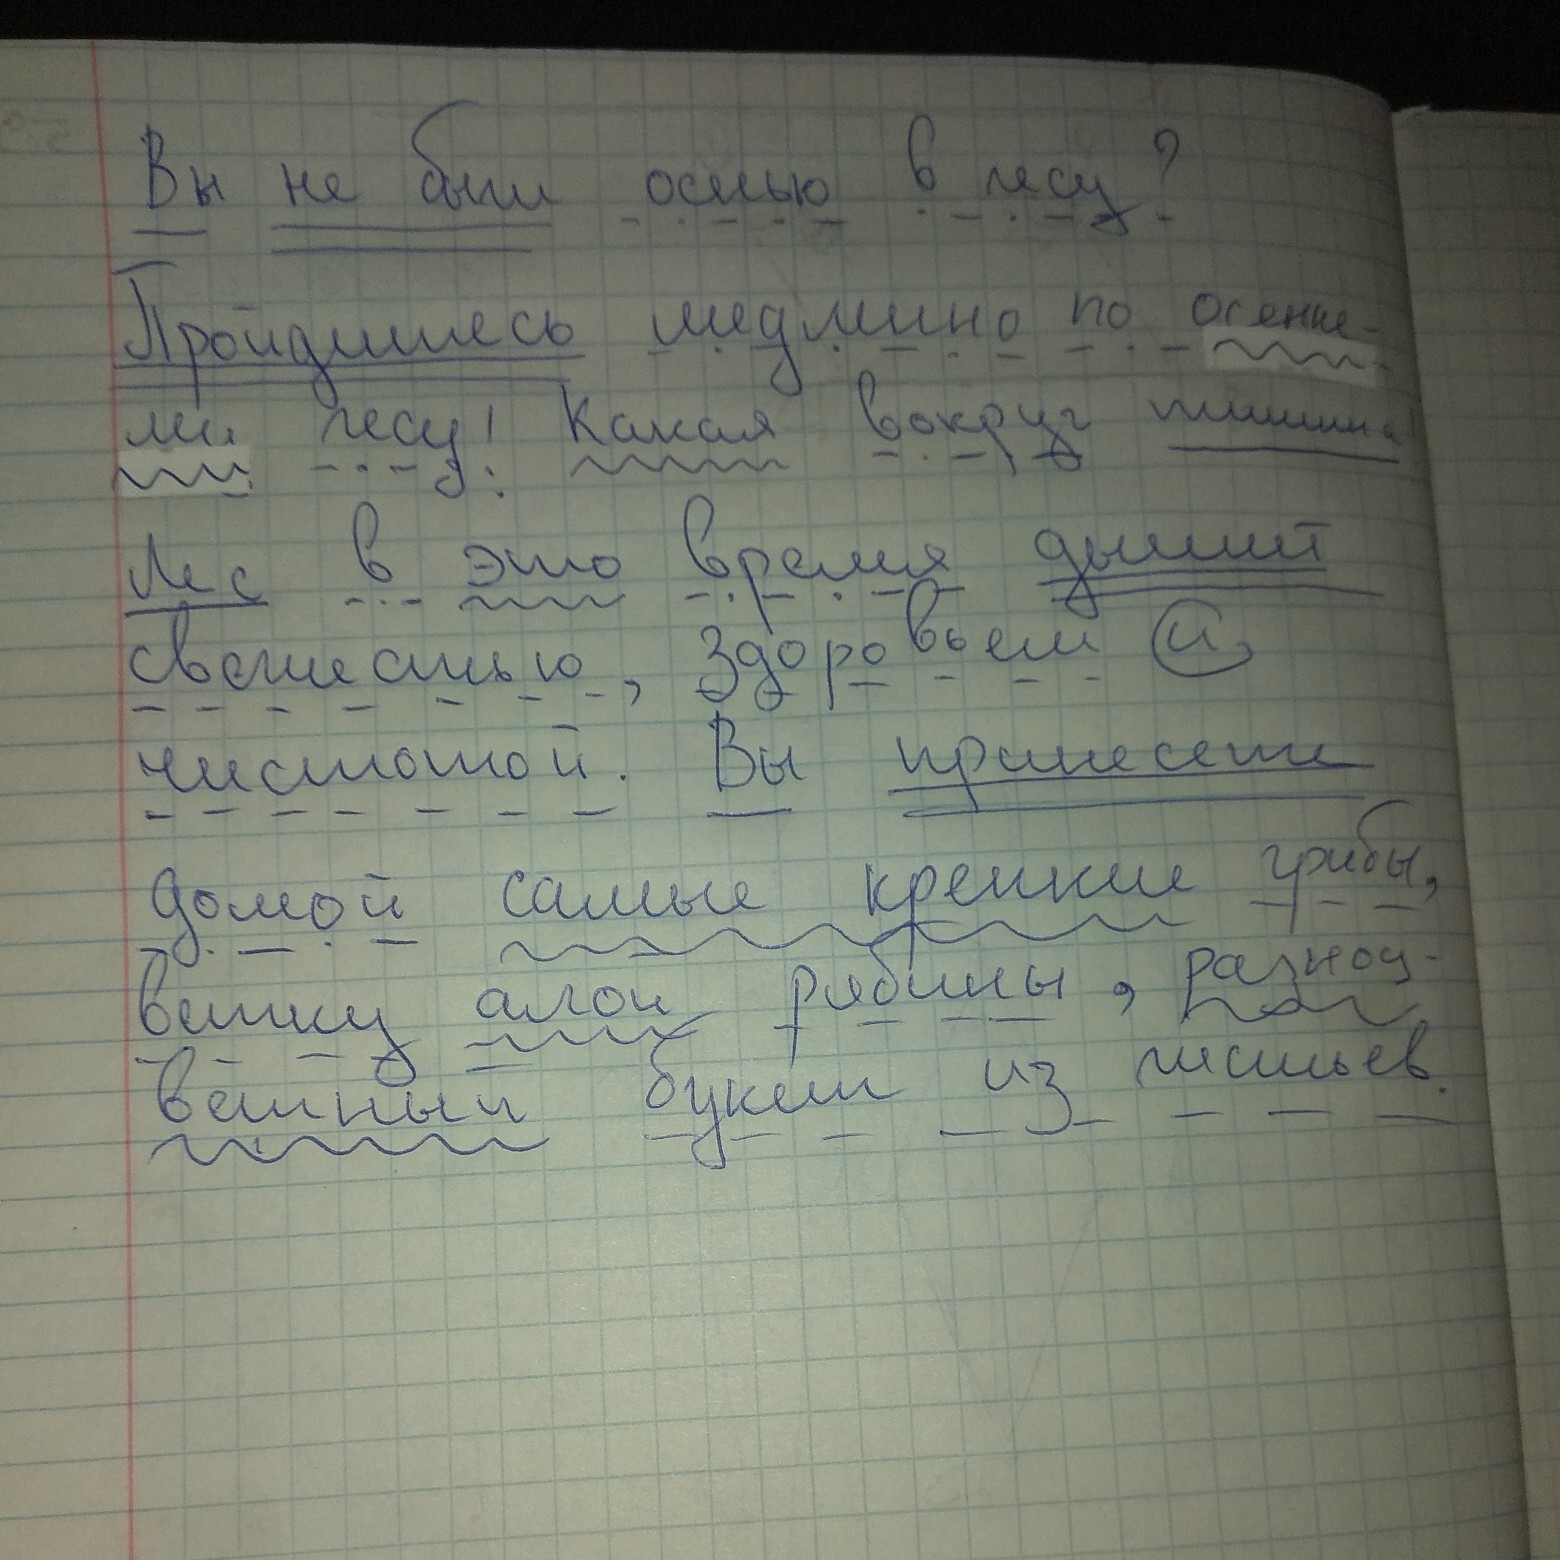 Вы не были осенью в лесу?
Пройдитесь медлинно по осенне-
му лесу! Какая вокруг тишина!
Лес в это время дышит
свежестью, здоровьем и
чистотой. Вы принесете
домой самые крепкие грибы,
ветку алой рябины, разноц-
ветный букет из листьев.